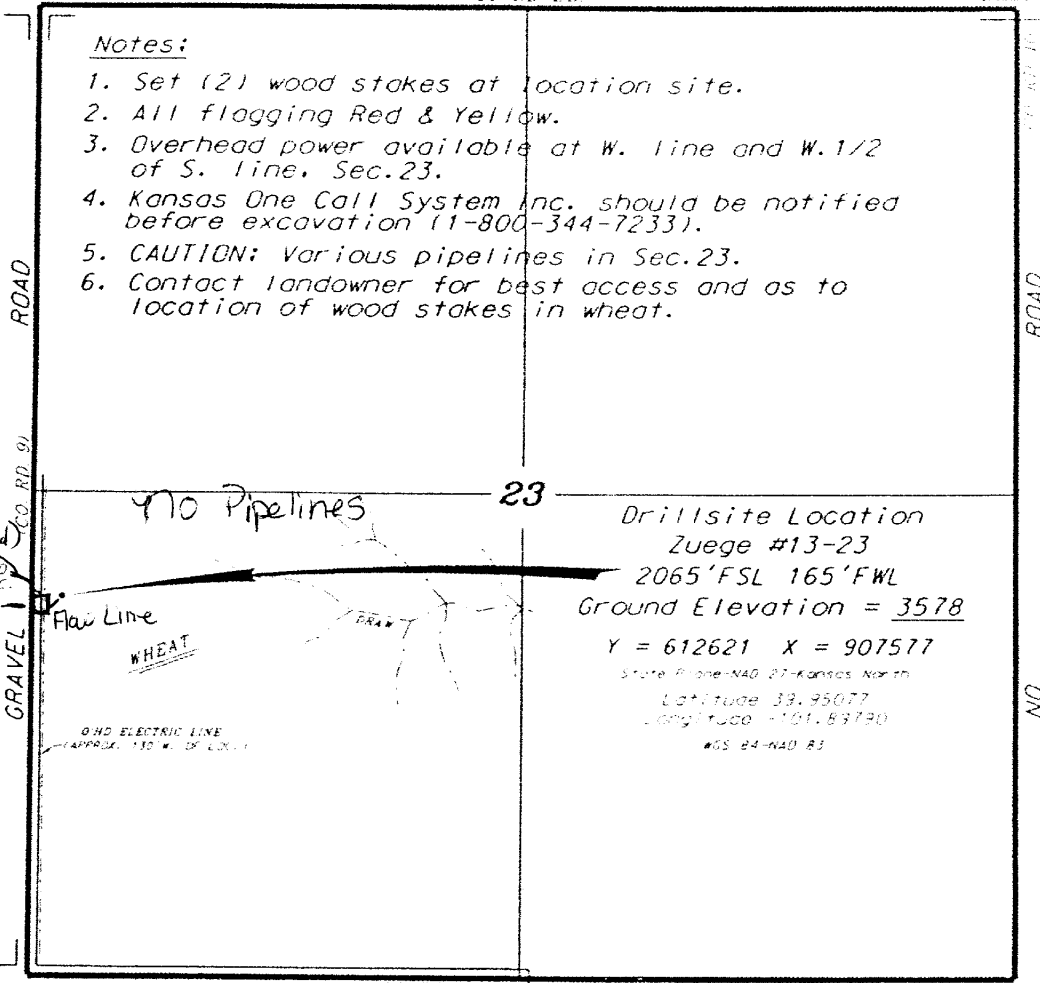 Notes:
1. Set (2) wood stakes at location site.
2. All flagging Red & Yellow.
3. Overhead power available at W. line and W.1/2
of S. line, Sec.23.
4. Kansas One Call System Inc. should be notified
before excavation (1-800-344-7233).
5. CAUTION: Various pipelines in Sec.23.
6. Contact landowner for best access and as to
location of wood stakes in wheat.
ROAD
ROAD
CO. RD 9
GRAVEL
NO
23
No Pipelines
Drillsite Location
Zuege #13-23
2065'FSL 165'FWL
Ground Elevation = 3578
Y = 612621 X = 907577
State Plane-NAD 27-Kansas North
Latitude 39.95077
Longitude -101.89790
WGS 84-NAD 83
Flow Line
WHEAT
DRAW
OHD ELECTRIC LINE
(APPROX. 130' W. OF LOC.)